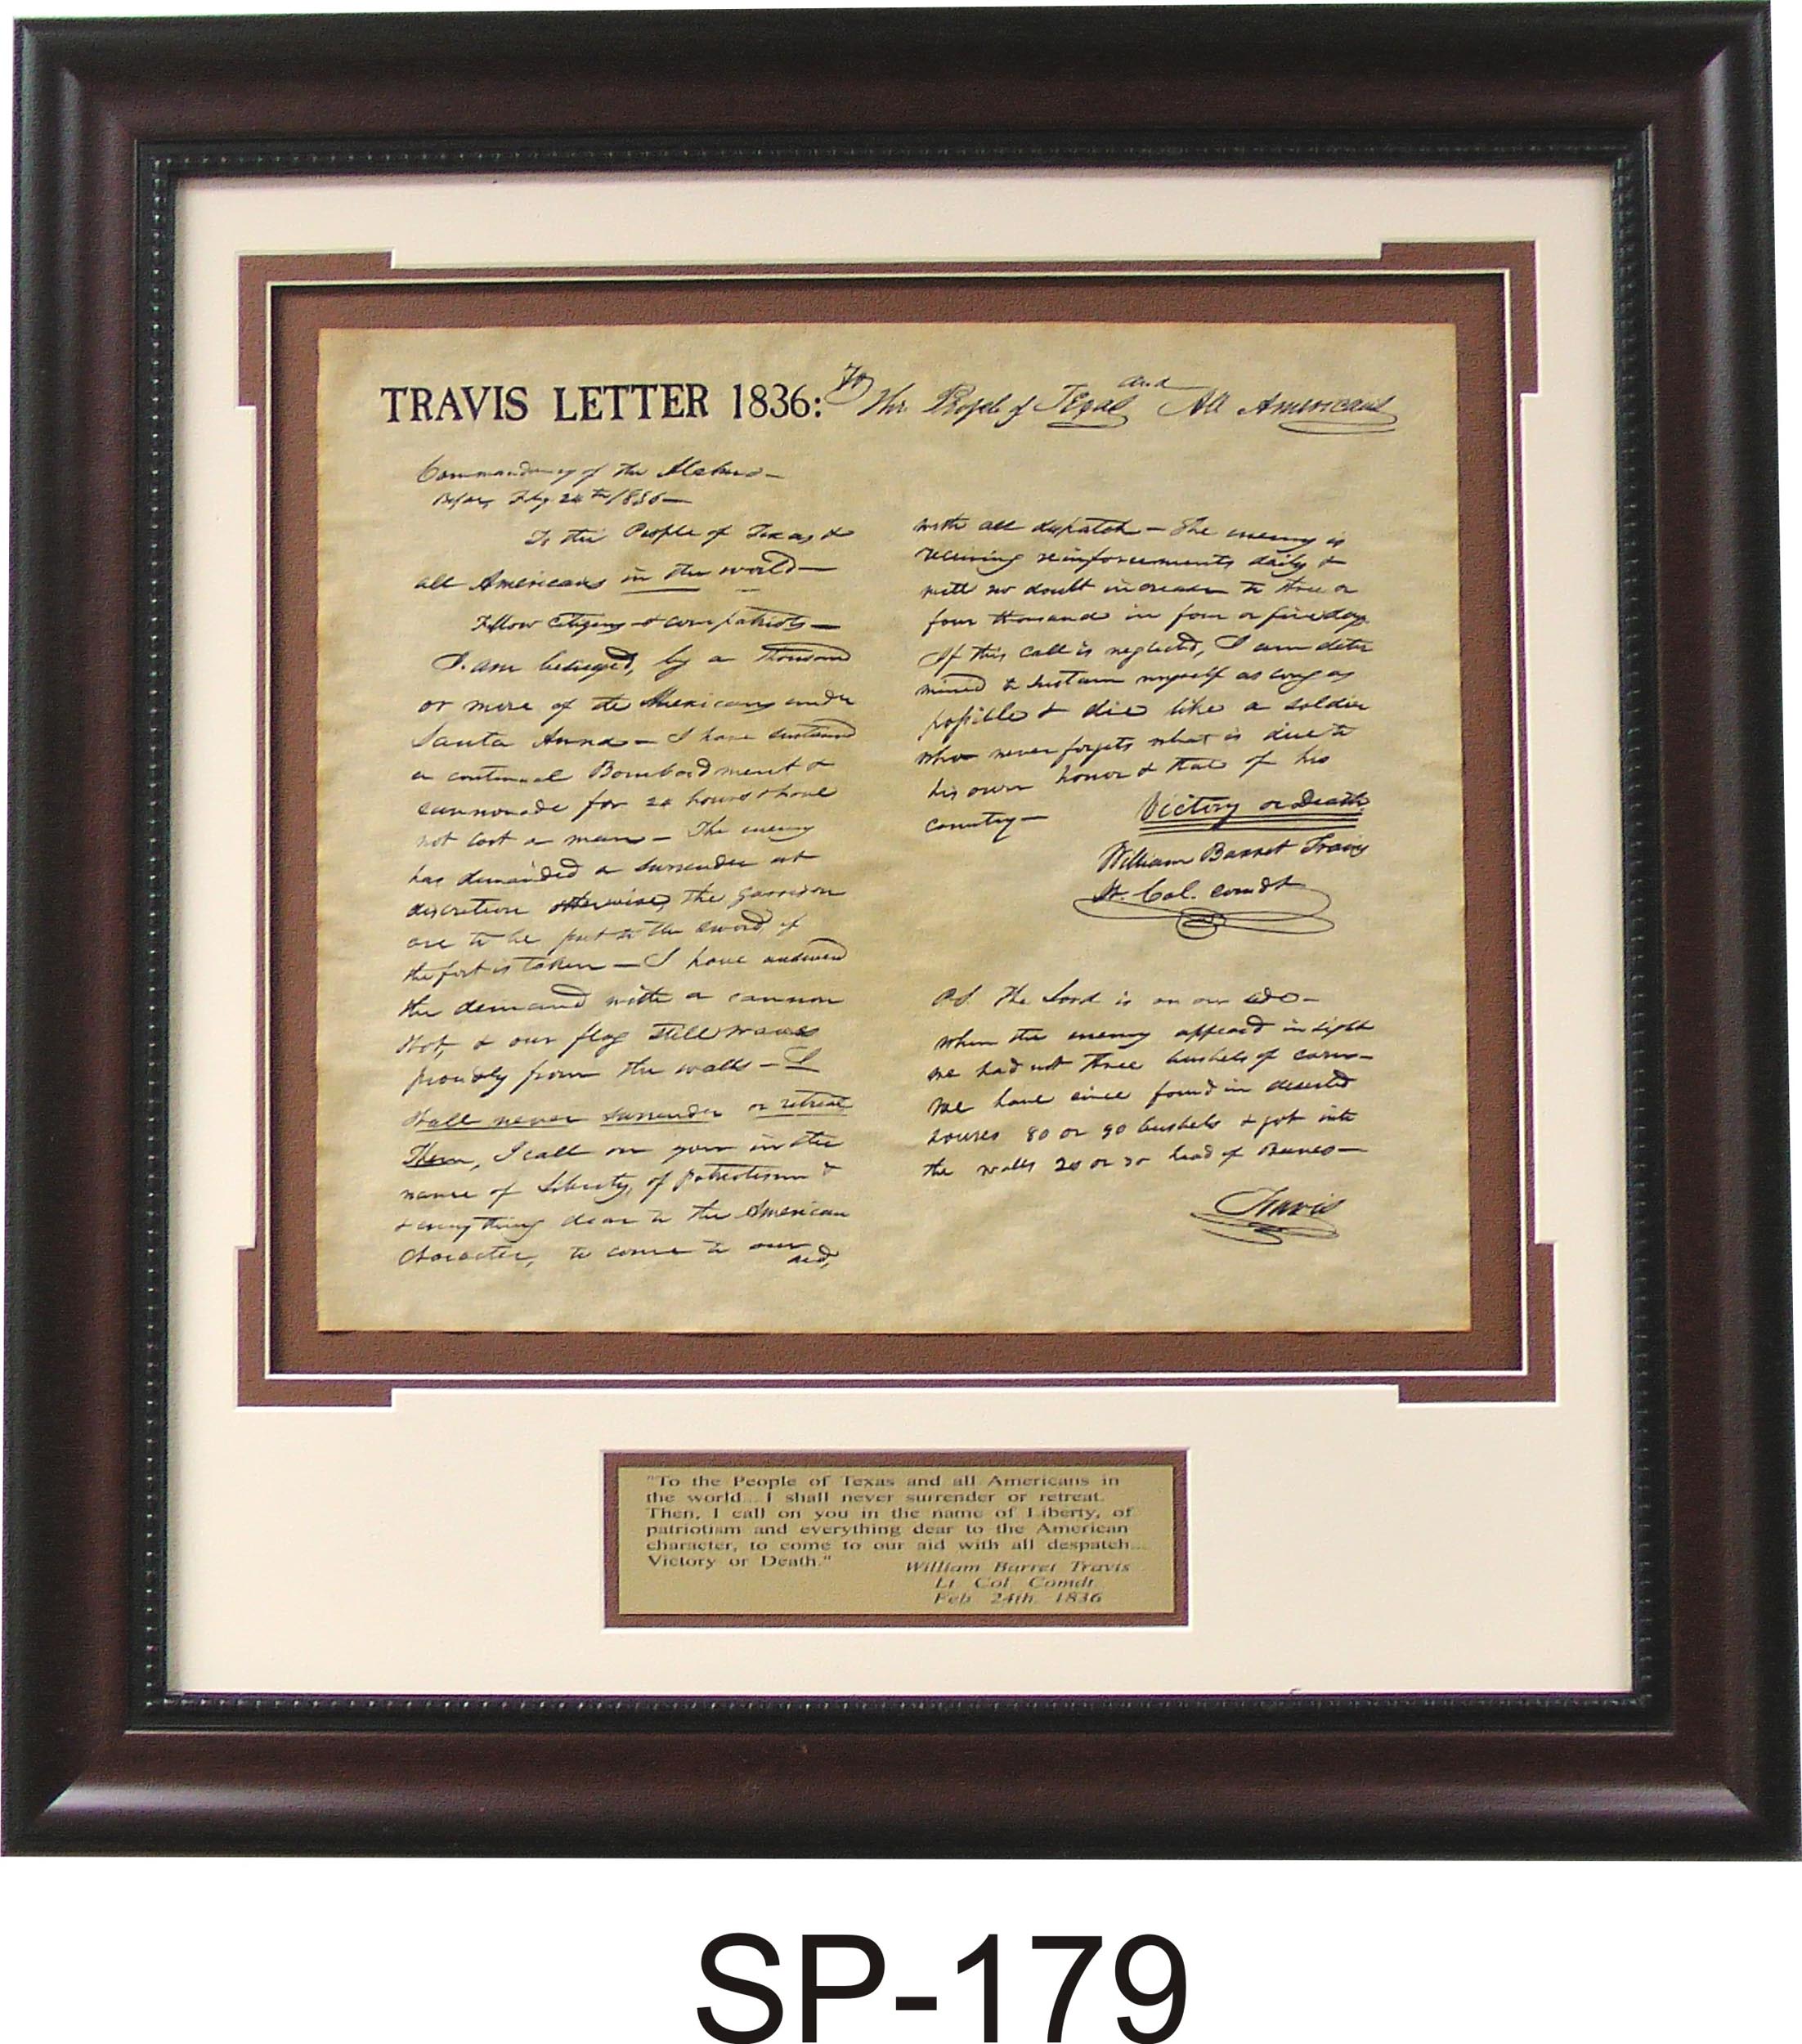 TRAVIS LETTER 1836: To The People of Texas and All Americans
Commandancy of the Alamo—
Bejar, Fby. 24th 1836—
To the People of Texas &
all Americans in the world—
Fellow citizens & compatriots—
I am besieged, by a thousand
or more of the Mexicans under
Santa Anna— I have sustained
a continual Bombardment &
cannonade for 24 hours & have
not lost a man— The enemy
has demanded a surrender at
discretion otherwise, the garrison
are to be put to the sword, if
the fort is taken— I have answered
the demand with a cannon
shot, & our flag still waves
proudly from the walls— I
shall never surrender or retreat
Then, I call on you in the
name of Liberty, of patriotism &
& every thing dear to the American
character, to come to our
aid,
with all dispatch— The enemy is
receiving reinforcements daily &
will no doubt increase to three or
four thousand in four or five days.
If this call is neglected, I am deter
mined to sustain myself as long as
possible & die like a soldier
who never forgets what is due to
his own honor & that of his
country—
Victory or Death
William Barret Travis
Lt. Col. comdt
P.S. The Lord is on our side—
When the enemy appeard in sight
we had not three bushels of corn—
We have since found in deserted
houses 80 or 90 bushels & got into
the walls 20 or 30 head of Beeves—
Travis
"To the People of Texas and all Americans in
the world... I shall never surrender or retreat.
Then, I call on you in the name of Liberty, of
patriotism and everything dear to the American
character, to come to our aid with all despatch...
Victory or Death."
William Barret Travis
Lt Col. Comdt.
Feb 24th, 1836
SP-179